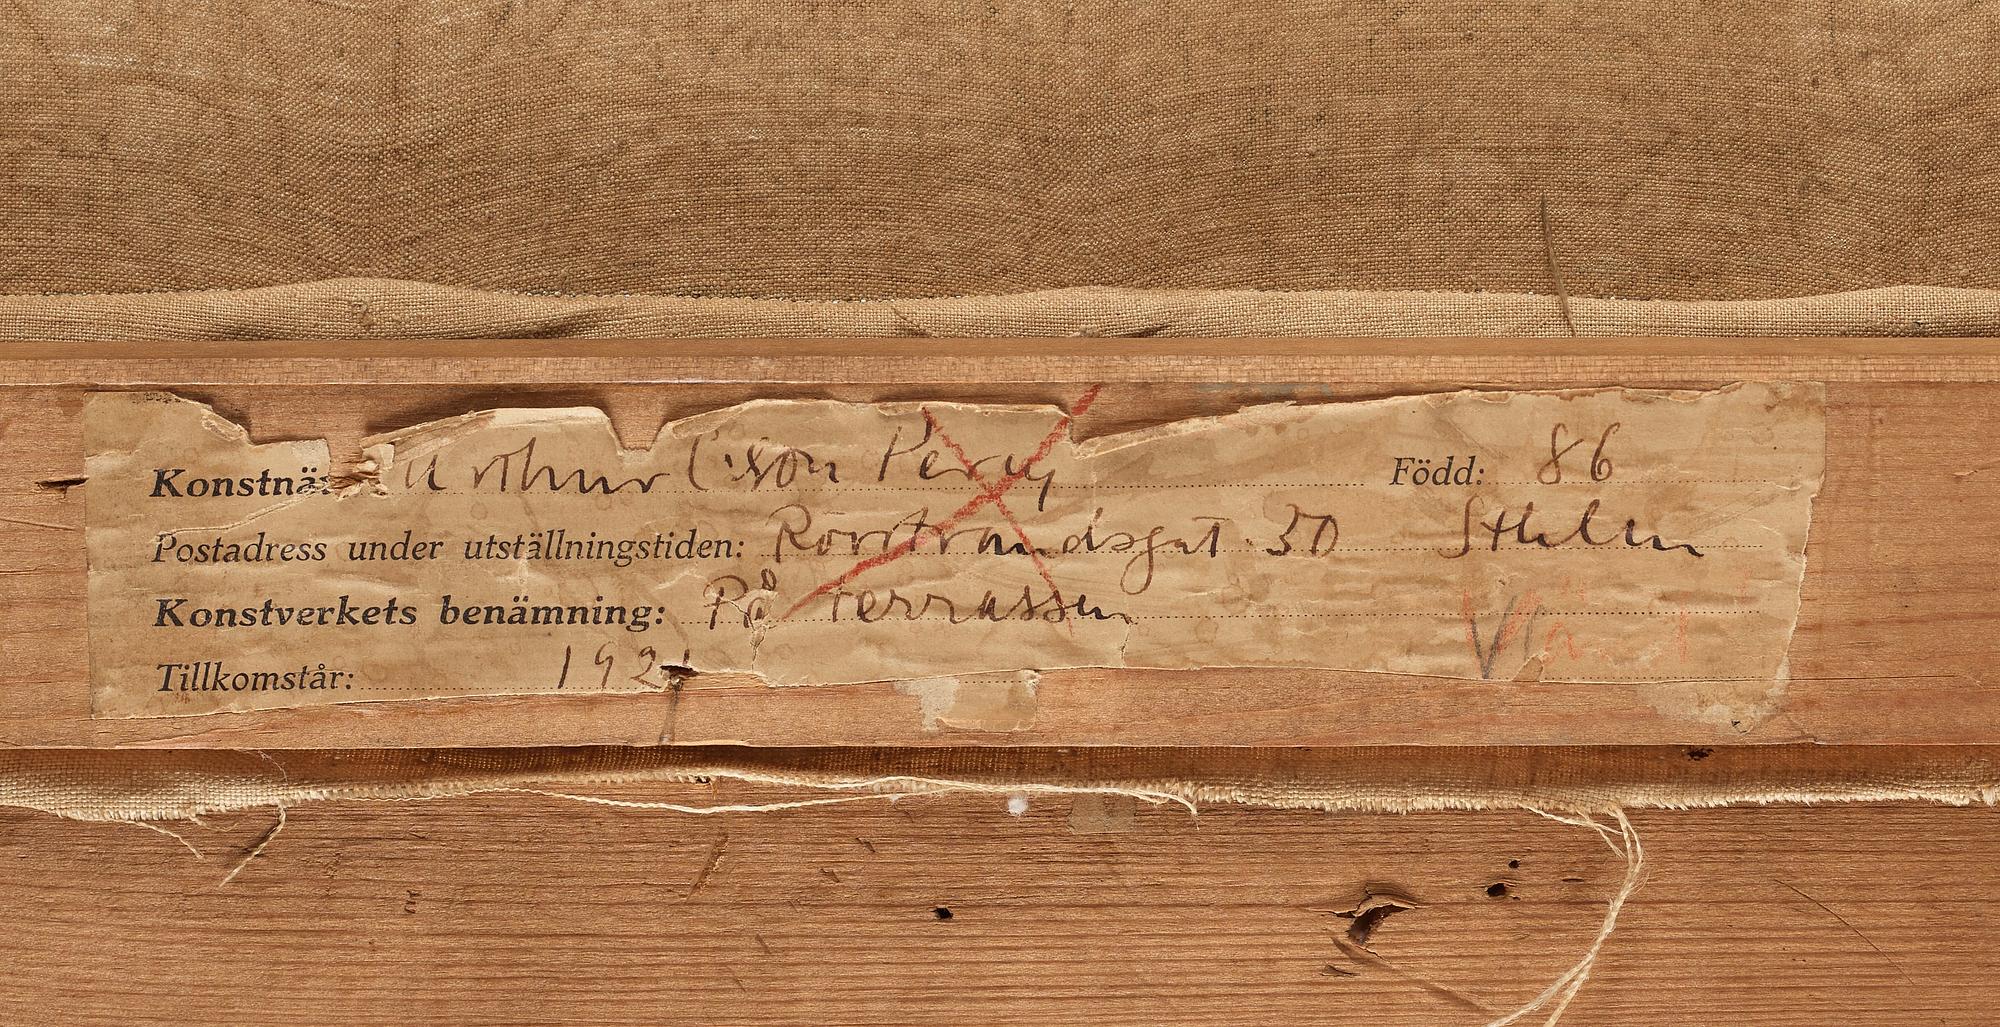 Konstnär: Arthur C:son Percy Född: 86
Postadress under utställningstiden: Rörstrandsgat. 30 Sthlm
Konstverkets benämning: På terrassen
Tillkomstår: 192